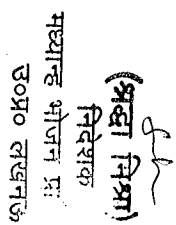 (श्रद्धा मिश्रा)
निदेशक
मध्यान्ह भोजन प्रा
उ०प्र० लखनऊ